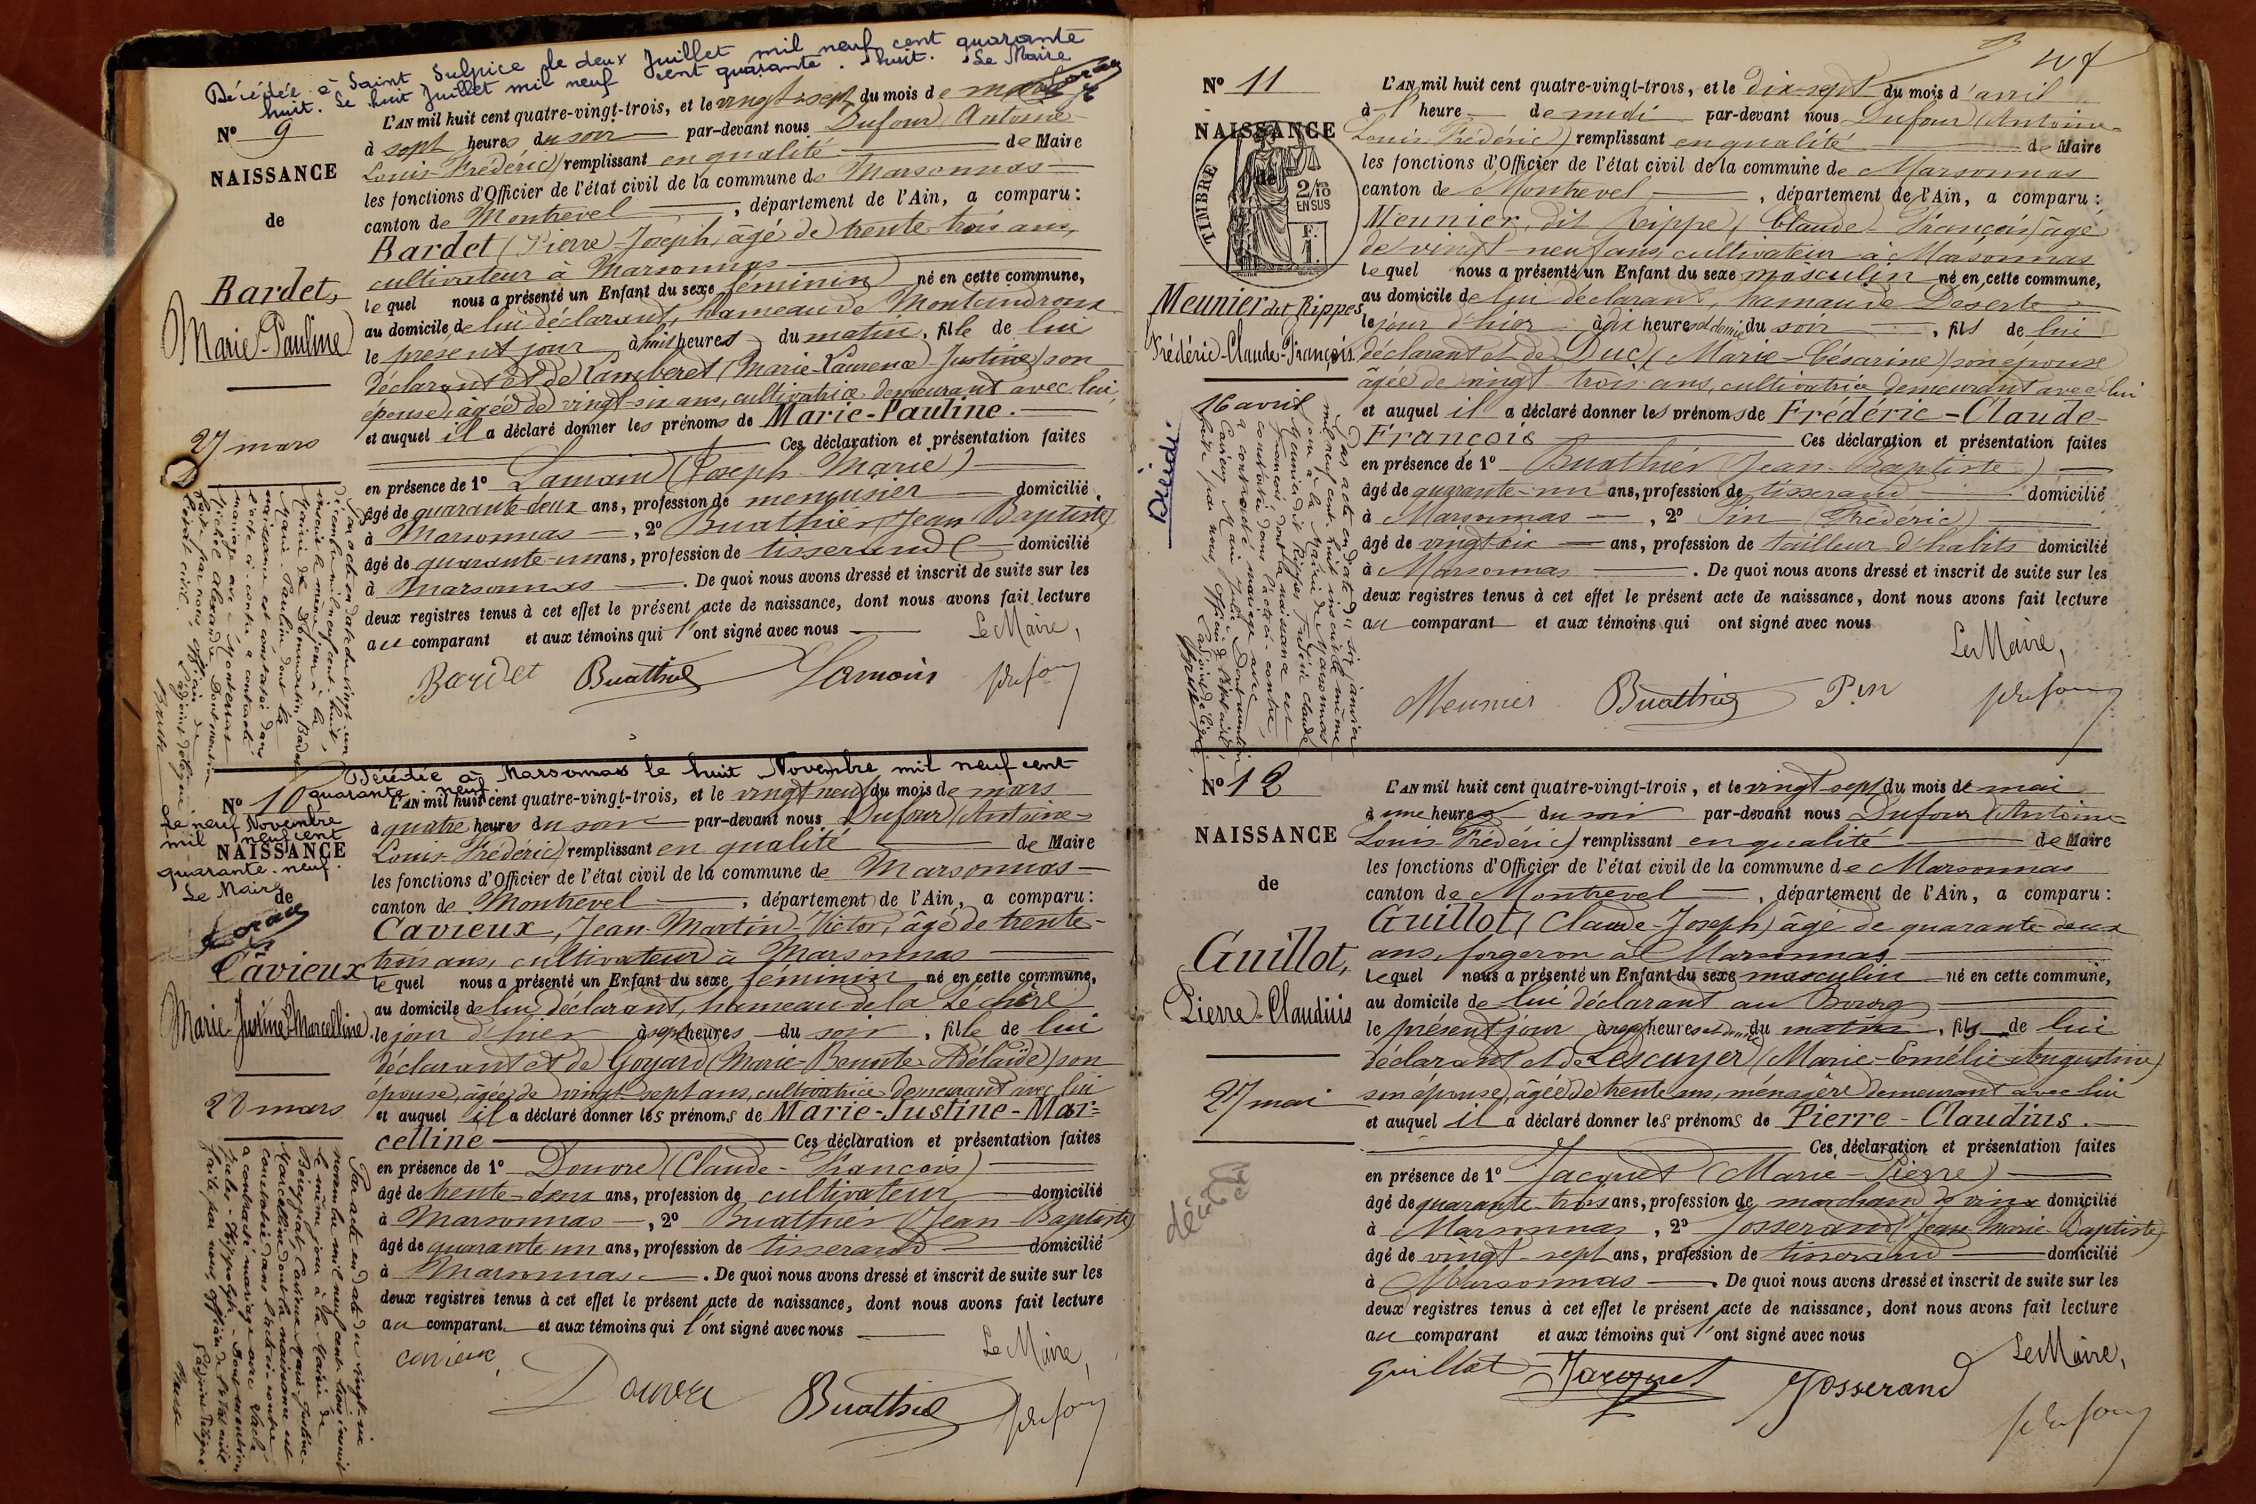 Décédée à Saint Sulpice le deux Juillet mil neuf cent quarante
huit. Le huit Juillet mil neuf cent quarante huit. Le Maire
N° 9
NAISSANCE
de
Bardet,
Marie-Pauline
27 mars
L'AN mil huit cent quatre-vingt-trois, et le vingt sept du mois de mars
à sept heures du soir par-devant nous Dufour (Antoine
Louis Frédéric) remplissant en qualité de Maire
les fonctions d'Officier de l'état civil de la commune de Marsonnas
canton de Montrevel, département de l'Ain, a comparu:
Bardet (Pierre-Joseph) âgé de trente-trois ans,
cultivateur à Marsonnas
lequel nous a présenté un Enfant du sexe féminin né en cette commune,
au domicile de lui déclarant, hameau de
le présent jour à huit heures du matin, fille de lui
déclarant et de Lamberet (Marie-Laurence Justine) son
épouse, âgée de vingt-six ans, cultivatrice demeurant avec lui,
et auquel il a déclaré donner les prénoms de Marie-Pauline.
Ces déclaration et présentation faites
en présence de 1° (Joseph Marie)
âgé de quarante-deux ans, profession de menuisier domicilié
à Marsonnas, 2° Buathier (Jean Baptiste)
âgé de quarante-un ans, profession de tisserand domicilié
à Marsonnas. De quoi nous avons dressé et inscrit de suite sur les
deux registres tenus à cet effet le présent acte de naissance, dont nous avons fait lecture
au comparant et aux témoins qui l'ont signé avec nous
Le Maire,
Bardet Buathier Dufour
Par acte en date du vingt-un
décembre mil neuf cent huit,
inscrit le même jour à la
Mairie de Dommartin, Bardet
Marie-Pauline dont la
naissance est constatée dans
l'acte ci-contre a contracté
mariage avec Monternot
Michel Alexandre. Dont mention
faite par nous, officier de
l'état civil.
Décédée à Marsonnas le huit Novembre mil neuf cent
quarante neuf
N° 10
Le neuf Novembre
mil neuf cent
NAISSANCE
quarante-neuf.
Le Maire
de
Cavieux
Marie-Justine-Marcelline.
28 mars
L'AN mil huit cent quatre-vingt-trois, et le vingt neuf du mois de mars
à quatre heures du soir par-devant nous Dufour (Antoine-
Louis Frédéric) remplissant en qualité de Maire
les fonctions d'Officier de l'état civil de la commune de Marsonnas
canton de Montrevel, département de l'Ain, a comparu:
Cavieux, Jean-Martin-Victor, âgé de trente-
trois ans, cultivateur à Marsonnas
lequel nous a présenté un Enfant du sexe féminin né en cette commune,
au domicile de lui déclarant, hameau de la Léchère
le jour d'hier à sept heures du soir, fille de lui
déclarant et de Goyard (Marie-Benoîte Adélaïde) son
épouse, âgée de vingt-sept ans, cultivatrice demeurant avec lui
et auquel il a déclaré donner les prénoms de Marie-Justine-Mar-
celline Ces déclaration et présentation faites
en présence de 1° Douvre (Claude-François)
âgé de trente-deux ans, profession de cultivateur domicilié
à Marsonnas, 2° Buathier (Jean-Baptiste)
âgé de quarante un ans, profession de tisserand domicilié
à Marsonnas. De quoi nous avons dressé et inscrit de suite sur les
deux registres tenus à cet effet le présent acte de naissance, dont nous avons fait lecture
au comparant et aux témoins qui l'ont signé avec nous
Le Maire,
cavieux Douvre Buathier Dufour
Par acte en date du vingt-six
novembre mil neuf cent trois inscrit
le même jour à la Mairie de
Béréyziat, Cavieux Marie-Justine-
Marcelline dont la naissance est
constatée dans l'acte ci-contre
a contracté mariage avec
Jules-Hippolyte. Dont mention
faite par nous, officier de l'état civil
N° 11
NAISSANCE
de
TIMBRE
2/10 EN SUS
F. 1.
Meunier dit Rippes
Frédéric-Claude-François.
16 avril
Décédé.
L'AN mil huit cent quatre-vingt-trois, et le dix-sept du mois d'avril
à 1 heure de midi par-devant nous Dufour (Antoine-
Louis Frédéric) remplissant en qualité de Maire
les fonctions d'Officier de l'état civil de la commune de Marsonnas
canton de Montrevel, département de l'Ain, a comparu:
Meunier, dit Rippes (Claude-François) âgé
de vingt-neuf ans, cultivateur à Marsonnas
lequel nous a présenté un Enfant du sexe masculin né en cette commune,
au domicile de lui déclarant, hameau de Deserte
le jour d'hier à dix heures et demie du soir, fils de lui
déclarant et de Duc (Marie-Césarine) son épouse
âgée de vingt-trois ans, cultivatrice demeurant avec lui
et auquel il a déclaré donner les prénoms de Frédéric-Claude-
François Ces déclaration et présentation faites
en présence de 1° Buathier (Jean-Baptiste)
âgé de quarante-un ans, profession de tisserand domicilié
à Marsonnas, 2° Pin (Frédéric)
âgé de vingt-six ans, profession de tailleur d'habits domicilié
à Marsonnas. De quoi nous avons dressé et inscrit de suite sur les
deux registres tenus à cet effet le présent acte de naissance, dont nous avons fait lecture
au comparant et aux témoins qui ont signé avec nous
Le Maire,
Meunier Buathier Pin Dufour
Par acte en date du six janvier
mil neuf cent huit inscrit le même
jour à la Mairie de Marsonnas
Meunier dit Rippes, Frédéric Claude
François, dont la naissance est
constatée dans l'acte ci-contre,
a contracté mariage avec
Cavieux Marie Julie. Dont mention
faite par nous, officier de l'état civil
N° 12
NAISSANCE
de
Guillot,
Pierre-Claudius
27 mai
décédé
L'AN mil huit cent quatre-vingt-trois, et le vingt sept du mois de mai
à une heure du soir par-devant nous Dufour (Antoine
Louis Frédéric) remplissant en qualité de Maire
les fonctions d'Officier de l'état civil de la commune de Marsonnas
canton de Montrevel, département de l'Ain, a comparu:
Guillot (Claude-Joseph) âgé de quarante-deux
ans, forgeron à Marsonnas
lequel nous a présenté un Enfant du sexe masculin né en cette commune,
au domicile de lui déclarant au Bourg
le présent jour à sept heures et demie du matin, fils de lui
déclarant et de Lescuyer (Marie-Emélie-Augustine)
son épouse, âgée de trente ans, ménagère demeurant avec lui
et auquel il a déclaré donner les prénoms de Pierre-Claudius.
Ces déclaration et présentation faites
en présence de 1° Jacquet (Marie-Pierre)
âgé de quarante-trois ans, profession de marchand de vins domicilié
à Marsonnas, 2° Josserand (Jean-Marie-Baptiste)
âgé de vingt-sept ans, profession de tisserand domicilié
à Marsonnas. De quoi nous avons dressé et inscrit de suite sur les
deux registres tenus à cet effet le présent acte de naissance, dont nous avons fait lecture
au comparant et aux témoins qui l'ont signé avec nous
Le Maire,
Guillot Jacquet Josserand Dufour